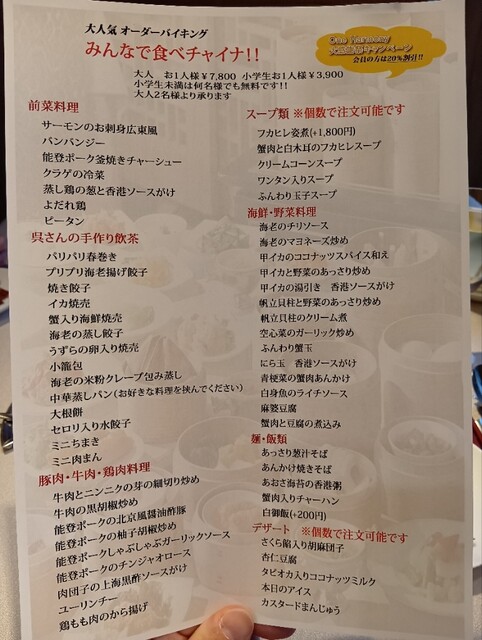 大人気 オーダーバイキング
みんなで食べチャイナ!!
One Harmony
キャンペーン
会員の方は20%割引!!
大人 お1人様￥7,800 小学生お1人様￥3,900
小学生未満は何名様でも無料です!!
大人2名様より承ります
前菜料理
サーモンのお刺身広東風
バンバンジー
能登ポーク釜焼きチャーシュー
クラゲの冷菜
蒸し鶏の葱と香港ソースがけ
よだれ鶏
ピータン
呉さんの手作り飲茶
パリパリ春巻き
プリプリ海老揚げ餃子
焼き餃子
イカ焼売
蟹入り海鮮焼売
海老の蒸し餃子
うずらの卵入り焼売
小籠包
海老の米粉クレープ包み蒸し
中華蒸しパン(お好きな料理を挟んでください)
大根餅
セロリ入り水餃子
ミニちまき
ミニ肉まん
豚肉・牛肉・鶏肉料理
牛肉とニンニクの芽の細切り炒め
牛肉の黒胡椒炒め
能登ポークの北京風醤油酢豚
能登ポークの柚子胡椒炒め
能登ポークしゃぶしゃぶガーリックソース
能登ポークのチンジャオロース
肉団子の上海黒酢ソースがけ
ユーリンチー
鶏もも肉のから揚げ
スープ類 ※個数で注文可能です
フカヒレ姿煮(+1,800円)
蟹肉と白木耳のフカヒレスープ
クリームコーンスープ
ワンタン入りスープ
ふんわり玉子スープ
海鮮・野菜料理
海老のチリソース
海老のマヨネーズ炒め
甲イカのココナッツスパイス和え
甲イカと野菜のあっさり炒め
甲イカの湯引き 香港ソースがけ
帆立貝柱と野菜のあっさり炒め
帆立貝柱のクリーム煮
空心菜のガーリック炒め
ふんわり蟹玉
にら玉 香港ソースがけ
青梗菜の蟹肉あんかけ
白身魚のライチソース
麻婆豆腐
蟹肉と豆腐の煮込み
麺・飯類
あっさり葱汁そば
あんかけ焼きそば
あおさ海苔の香港粥
蟹肉入りチャーハン
白御飯(+200円)
デザート ※個数で注文可能です
さくら餡入り胡麻団子
杏仁豆腐
タピオカ入りココナッツミルク
本日のアイス
カスタードまんじゅう